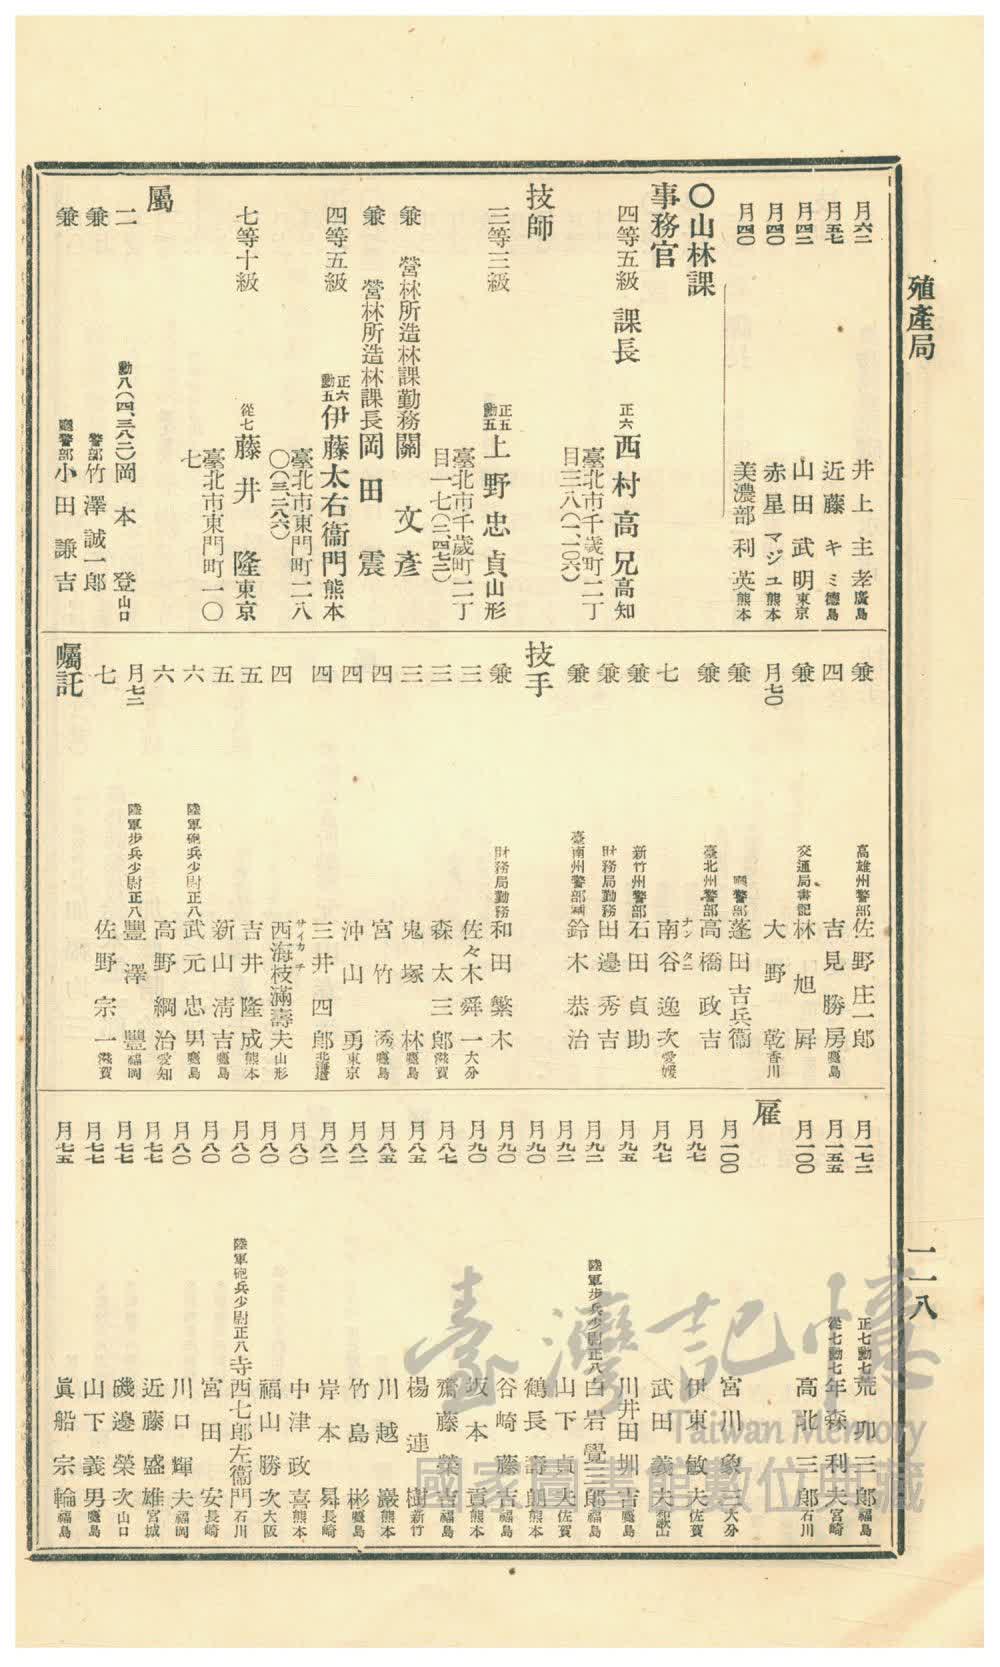 殖產局
一一八
月六二 井上主孝 廣島
月五七 近藤キミ 德島
月四二 山田武明 東京
月四〇 赤星マジユ 熊本
月四〇 美濃部利英 熊本
〇山林課
事務官
四等五級 課長 正六 西村高兄 高知
臺北市千歲町二丁
目三八(一、二〇六)
技師
三等三級 正五勳五 上野忠貞 山形
臺北市千歲町二丁
目一七(二、四七二)
兼 營林所造林課勤務 關文彥
兼 營林所造林課長 岡田震
四等五級 正六勳五 伊藤太右衞門 熊本
臺北市東門町二八
〇(三、二八六)
七等十級 從七 藤井隆 東京
臺北市東門町一〇
七
屬
二 勳八(四、三八二) 岡本登 山口
兼 警部 竹澤誠一郎
兼 屬警部 小田謙吉
兼 高雄州警部 佐野庄一郎
四 吉見勝房 鹿兒島
兼 交通局書記 林旭屏
月七〇 大野乾 香川
兼 屬警部 蓬田吉兵衞
兼 臺北州警部 高橋政吉
七 南谷逸次 愛媛
ナンタニ
兼 新竹州警部 石田貞助
兼 財務局勤務 田邊秀吉
兼 臺南州警部補 鈴木恭治
技手
兼 財務局勤務 和田繁木
三 佐々木舜一 大分
三 森太三郎 滋賀
三 鬼塚林 鹿兒島
四 宮竹湧 鹿兒島
四 沖山勇 東京
四 三井四郎 北海道
四 西海枝滿壽夫 山形
サイカチ
五 吉井隆成 熊本
五 新山淸吉 鹿兒島
六 陸軍砲兵少尉正八 武元忠男 鹿兒島
六 高野綱治 愛知
月七二 陸軍步兵少尉正八 豐澤豐 福岡
七 佐野宗一 滋賀
囑託
月一七二 正七勳七 荒卯三郎 福島
月一五五 從七勳七 年森利夫 宮崎
月一〇〇 高北三郎 石川
雇
月一〇〇 宮川象三 大分
月九七 伊東敏夫 佐賀
月九七 武田義夫 和歌山
月九五 川井田圳吉 鹿兒島
月九二 陸軍步兵少尉正八 白岩覺三郎 福島
月九二 山下貞夫 佐賀
月九〇 鶴長壽朗 熊本
月九〇 谷崎藤吉 福島
月九〇 坂本貢 熊本
月八七 齋藤業吉 鹿兒島
月八五 楊連樹 新竹
月八五 川越巖 熊本
月八二 竹島彬 鹿兒島
月八二 岸本舜 長崎
月八〇 中津政喜 熊本
月八〇 福山勝次 大阪
月八〇 陸軍砲兵少尉正八 寺西七郎左衞門 石川
月八〇 宮田安 長崎
月八〇 川口輝夫 福岡
月七七 近藤盛雄 宮城
月七七 磯邊榮次 山口
月七七 山下義男 鹿兒島
月七五 眞船宗輪 福島
臺灣記憶
Taiwan Memory
國家圖書館數位典藏